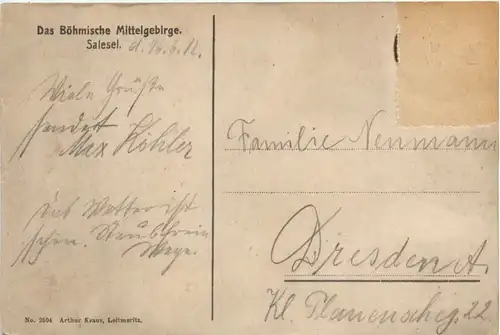 Das Böhmische Mittelgebirge.
Salesel. d. 16.6.12.
Viele Grüße
sendet
Max Köhler
Das Wetter ist
schön.
Wege.
Familie Neumann
Dresden A.
Kl. Plauenscheg. 22
No. 2504 Arthur Kraus, Leitmeritz.